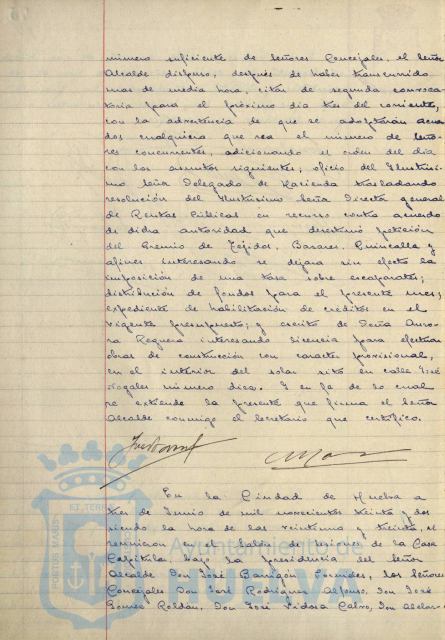 número suficiente de Señores Concejales, el Señor
Alcalde dispuso, después de haber transcurrido
mas de media hora, citar de segunda convoca-
toria para el próximo dia tres del corriente,
con la advertencia de que se adoptarán acuer-
dos cualquiera que sea el número de Seño-
res concurrentes, adicionando el orden del dia
con los asuntos siguientes; oficio del Ilustrísi-
mo Señor Delegado de Hacienda trasladando
resolución del Ilustrísimo Señor Director general
de Rentas Públicas en recurso contra acuerdo
de dicha autoridad que desestimó petición
del Gremio de Tejidos, Bazares, Quincalla y
afines interesando se dejara sin efecto la
imposición de una tasa sobre escaparates;
distribución de fondos para el presente mes;
expediente de habilitación de creditos en el
vigente presupuesto; y escrito de Doña Auro-
ra Requena interesando licencia para efectuar
obras de construcción con caracter provisional,
en el interior del solar sito en calle José
Nogales número diez. Y en fe de lo cual
se extiende la presente que firma el Señor
Alcalde conmigo el Secretario que certifico.
En la Ciudad de Huelva a
tres de Junio de mil novecientos treinta y dos
siendo la hora de las veintiuna y treinta, se
reunieron en el Salón de sesiones de la Casa
Capitular, bajo la presidencia del Señor
Alcalde Don José Barrigón Fornieles, los Señores
Concejales Don José Rodríguez Alfonso, Don José
Gomez Roldán, Don José Vidosa Calvo, Don
PORTUS MARIS ET TERRAE
Ayuntamiento de
HUELVA